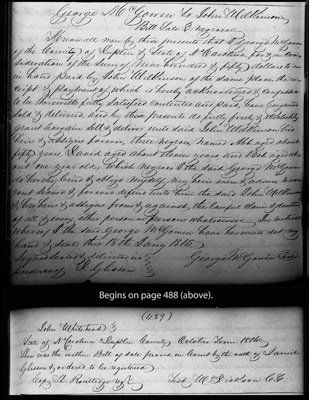 George McGowen to John Wilkinson
Bill Sale 3 Negroes
Know all men by these presents that I George McGowen
of the County of Duplin & State of N Carolina for & in con
sideration of the sum of Nine hundred & fifty dollars to me
in hand paid by John Wilkinson of the same place the re
ceipt & payment of which is hereby acknowledged & confessed
to be therewith fully satisfied contented and paid, have bargained
sold & delivered and by these presents do fully freely & absolutely
grant bargain sell & deliver unto said John Wilkinson his
heirs & assigns forever three negroes, named about
fifty years, David aged about years and aged ab
out one year old, Which negroes I the said George McGowen
do hereby bind & oblige myself my heirs exers & admrs warr
ant secure & forever defend unto him the said John Wilkinson
his heirs & assigns from & against the lawful claim & demand
of all & every other person or persons whatsoever In witness
whereof I the said George McGowen have hereunto set my
hand & seal this 18th Jany 1816
Signed sealed & delivered in
presence of Gleson George McGowen
Begins on page 488 (above).
(489)
John Whitehead
State of N Carolina Duplin County October Term 1816
Then was the within Bill of sale proved in Court by the oath of
& ordered to be registered
Copy Test Wm Dickson C.C.